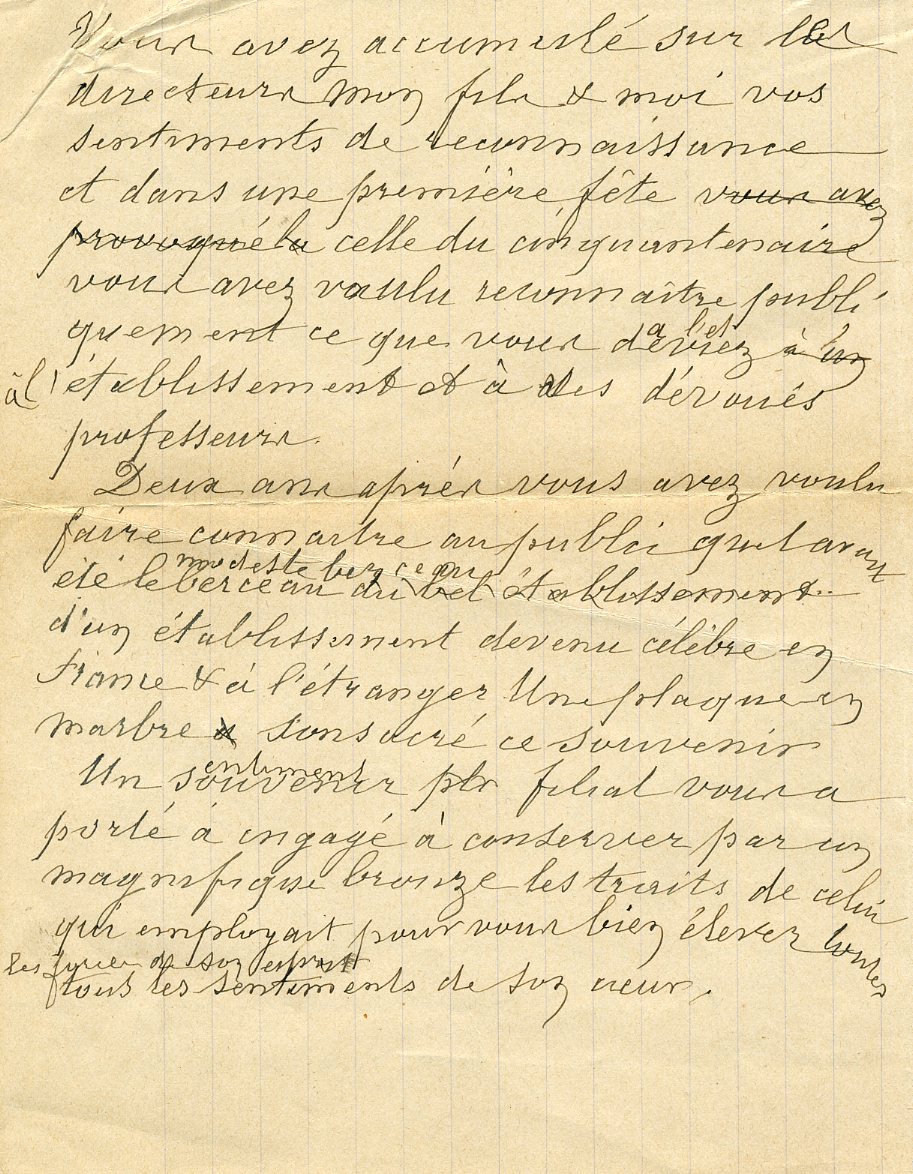 Vous avez accumulé sur les
directeurs mon fils & moi vos
sentiments de reconnaissance
et dans une première fête vous avez
provoqué la celle du cinquantenaire
vous avez voulu reconnaître publi
quement ce que vous deviez à un
à l'et
à l'établissement et à des dévoués
professeurs.
Deux ans après vous avez voulu
faire connaitre au public quel avait
modeste berceau
été le berceau du bel établissement
d'un établissement devenu célèbre en
France & à l'étranger Une plaque en
marbre & consacré ce souvenir
entiment
Un souvenir plus filial vous a
porté à engagé à conserver par un
magnifique bronze les traits de celui
qui employait pour vous bien élever toutes
les forces de son esprit
tous les sentiments de son cœur.